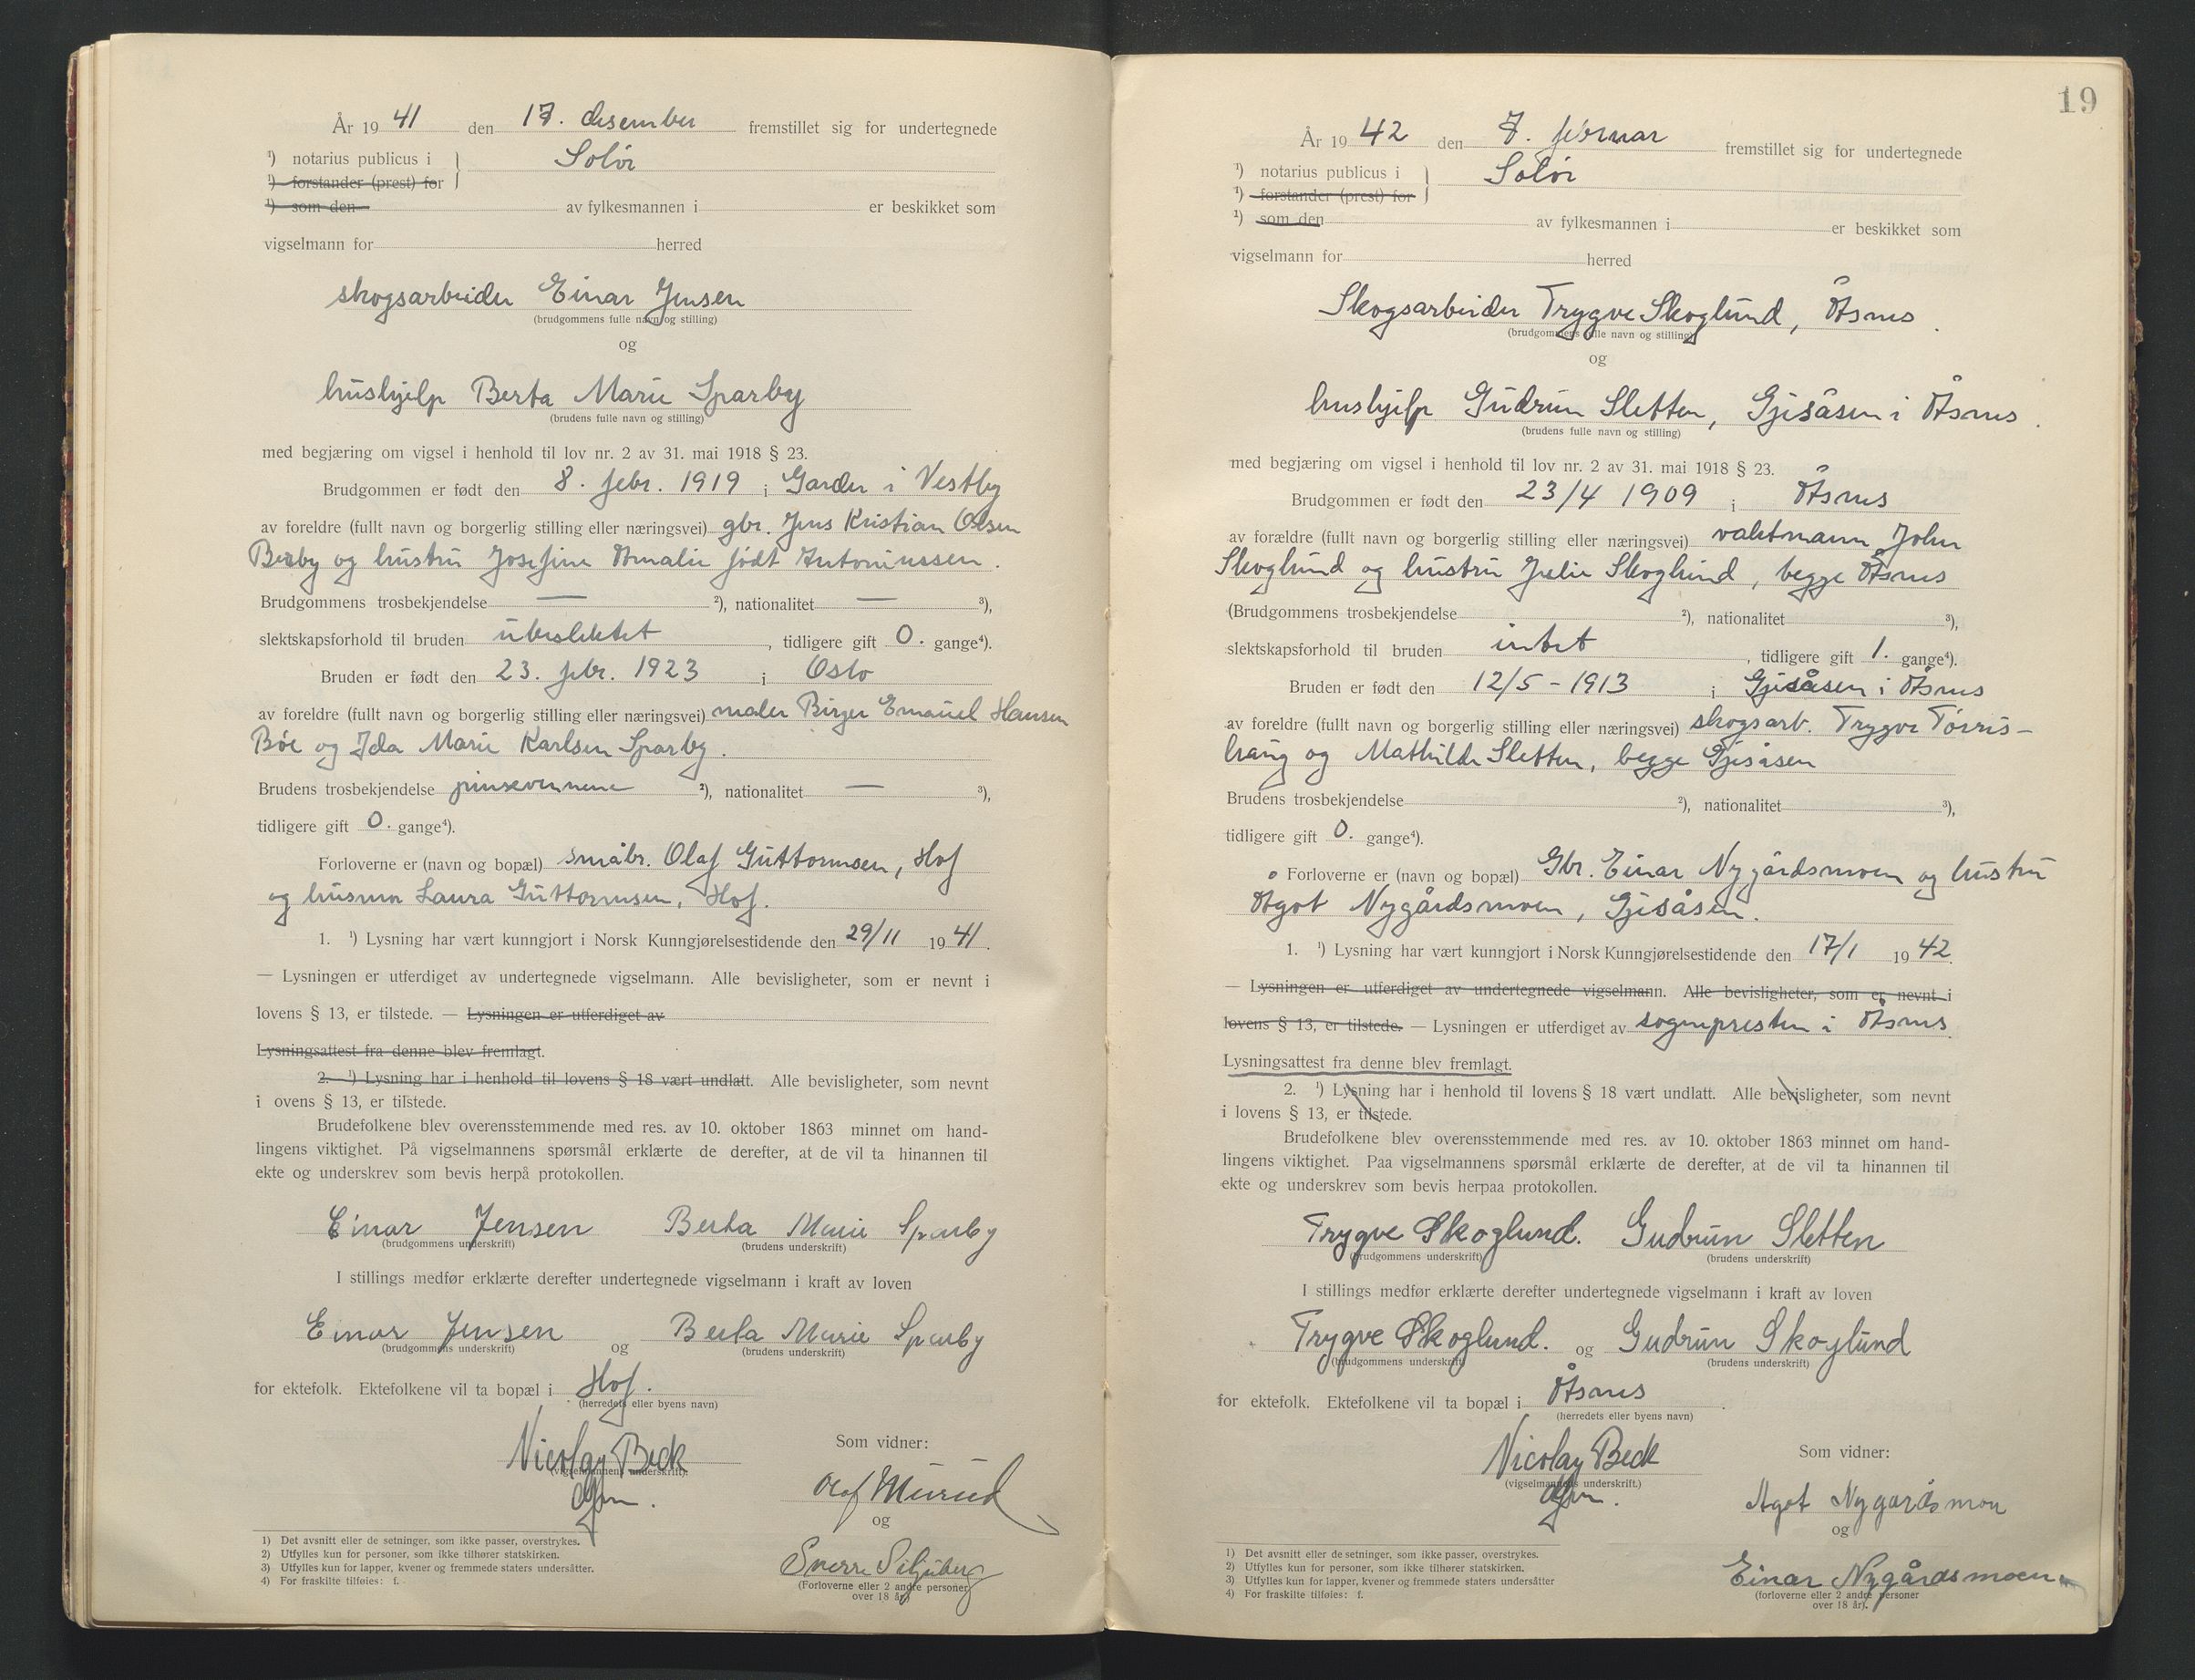 År 1941 den 17. desember fremstillet sig for undertegnede
¹) notarius publicus i } Solør
¹) forstander (prest) for
¹) som den av fylkesmannen i er beskikket som
vigselmann for herred
skogsarbeider Einar Jensen
(brudgommens fulle navn og stilling)
og
hushjelp Berta Marie Sparby
(brudens fulle navn og stilling)
med begjæring om vigsel i henhold til lov nr. 2 av 31. mai 1918 § 23.
Brudgommen er født den 8. febr. 1919 i Garder i Vestby
av foreldre (fullt navn og borgerlig stilling eller næringsvei) gbr. Jens Kristian Olsen
Berby og hustru Josefine Amalie født Antoniussen.
Brudgommens trosbekjendelse — ²), nationalitet — ³),
slektskapsforhold til bruden ubeslektet, tidligere gift 0. gange⁴).
Bruden er født den 23. febr. 1923 i Oslo
av foreldre (fullt navn og borgerlig stilling eller næringsvei) maler Birger Emanuel Hansen
Bøe og Ida Marie Karlsen Sparby.
Brudens trosbekjendelse pinsevennene ²), nationalitet — ³),
tidligere gift 0. gange⁴).
Forloverne er (navn og bopæl) småbr. Olaf Guttormsen, Hof
og husmor Laura Guttormsen, Hof.
1. ¹) Lysning har vært kunngjort i Norsk Kunngjørelsestidende den 29/11 1941.
— Lysningen er utferdiget av undertegnede vigselmann. Alle bevisligheter, som er nevnt i
lovens § 13, er tilstede. — Lysningen er utferdiget av
Lysningsattest fra denne blev fremlagt.
2. ¹) Lysning har i henhold til lovens § 18 vært undlatt. Alle bevisligheter, som nevnt
i ovens § 13, er tilstede.
Brudefolkene blev overensstemmende med res. av 10. oktober 1863 minnet om hand-
lingens viktighet. På vigselmannens spørsmål erklærte de derefter, at de vil ta hinannen til
ekte og underskrev som bevis herpå protokollen.
Einar Jensen Berta Marie Sparby
(brudgommens underskrift) (brudens underskrift)
I stillings medfør erklærte derefter undertegnede vigselmann i kraft av loven
Einar Jensen og Berta Marie Sparby
(brudgommens underskrift) (brudens underskrift)
for ektefolk. Ektefolkene vil ta bopæl i Hof.
(herredets eller byens navn)
Nicolay Beck
(vigselmannens underskrift).
Som vidner:
Olaf Murud
og
Sverre Siljuberg
(Forloverne eller 2 andre personer
over 18 år)
1) Det avsnitt eller de setninger, som ikke passer, overstrykes.
2) Utfylles kun for personer, som ikke tilhører statskirken.
3) Utfylles kun for lapper, kvener og fremmede staters undersåtter.
4) For fraskilte tilføies: f.
19
År 1942 den 7. februar fremstillet sig for undertegnede
¹) notarius publicus i } Solør
¹) forstander (prest) for
¹) som den av fylkesmannen i er beskikket som
vigselmann for herred
Skogsarbeider Trygve Skoglund, Åsnes.
(brudgommens fulle navn og stilling)
og
hushjelp Gudrun Sletten, Gjesåsen i Åsnes.
(brudens fulle navn og stilling)
med begjæring om vigsel i henhold til lov nr. 2 av 31. mai 1918 § 23.
Brudgommen er født den 23/4 1909 i Åsnes
av forældre (fullt navn og borgerlig stilling eller næringsvei) vaktmann John
Skoglund og hustru Julie Skoglund, begge Åsnes
(Brudgommens trosbekjendelse ²), nationalitet ³),
slektskapsforhold til bruden intet, tidligere gift 1. gange⁴).
Bruden er født den 12/5 - 1913 i Gjesåsen i Åsnes
av foreldre (fullt navn og borgerlig stilling eller næringsvei) skogsarb. Trygve Tørris-
haug og Mathilde Sletten, begge Gjesåsen
Brudens trosbekjendelse ²), nationalitet ³),
tidligere gift 0. gange⁴).
Forloverne er (navn og bopæl) Gbr. Einar Nygårdsmoen og hustru
Ågot Nygårdsmoen, Gjesåsen.
1. ¹) Lysning har vært kunngjort i Norsk Kunngjørelsestidende den 17/1 1942.
— Lysningen er utferdiget av undertegnede vigselmann. Alle bevisligheter, som er nevnt i
lovens § 13, er tilstede. — Lysningen er utferdiget av sognepresten i Åsnes.
Lysningsattest fra denne blev fremlagt.
2. ¹) Lysning har i henhold til lovens § 18 vært undlatt. Alle bevisligheter, som nevnt
i lovens § 13, er tilstede.
Brudefolkene blev overensstemmende med res. av 10. oktober 1863 minnet om hand-
lingens viktighet. Paa vigselmannens spørsmål erklærte de derefter, at de vil ta hinannen til
ekte og underskrev som bevis herpaa protokollen.
Trygve Skoglund. Gudrun Sletten
(brudgommens underskrift) (brudens underskrift)
I stillings medfør erklærte derefter undertegnede vigselmann i kraft av loven
Trygve Skoglund. og Gudrun Skoglund
(brudgommens underskrift) (brudens underskrift)
for ektefolk. Ektefolkene vil ta bopæl i Åsnes.
(herredets eller byens navn)
Nicolay Beck
(vigselmannens underskrift.)
Som vidner:
Agot Nygårdsmoen
og
Einar Nygårdsmoen.
(forloverne eller 2 andre personer
over 18 år).
1) Det avsnitt eller de setninger, som ikke passer, overstrykes.
2) Utfylles kun for personer, som ikke tilhører statskirken.
3) Utfylles kun for lapper, kvener og fremmede staters undersåtter
4) For fraskilte tilføies: f.